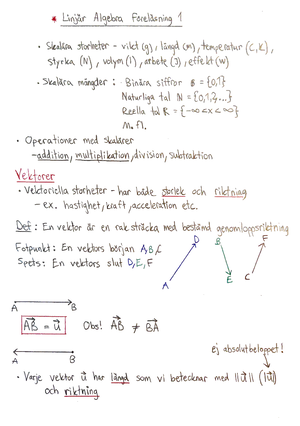 * Linjär Algebra Föreläsning 1
• Skalära storheter - vikt (g), längd (m), temperatur (C, K),
styrka (N), volym (l), arbete (J), effekt (W)
• Skalära mängder : • Binära siffror B = {0,1}
Naturliga tal N = {0,1,2,...}
Reella tal R = {-∞<x<∞}
m. fl.
• Operationer med skalärer
- addition, multiplikation, division, subtraktion
Vektorer
• Vektoriella storheter - har både storlek och riktning
- ex. hastighet, kraft, acceleration etc.
Def : En vektor är en rak sträcka med bestämd genomloppsriktning
Fotpunkt : En vektors början A, B, C
Spets : En vektors slut D, E, F
D B F
A E C
A B
AB = u Obs! AB ≠ BA
A B
ej absolutbeloppet!
• Varje vektor u har längd som vi betecknar med ||u|| (|u|)
och riktning